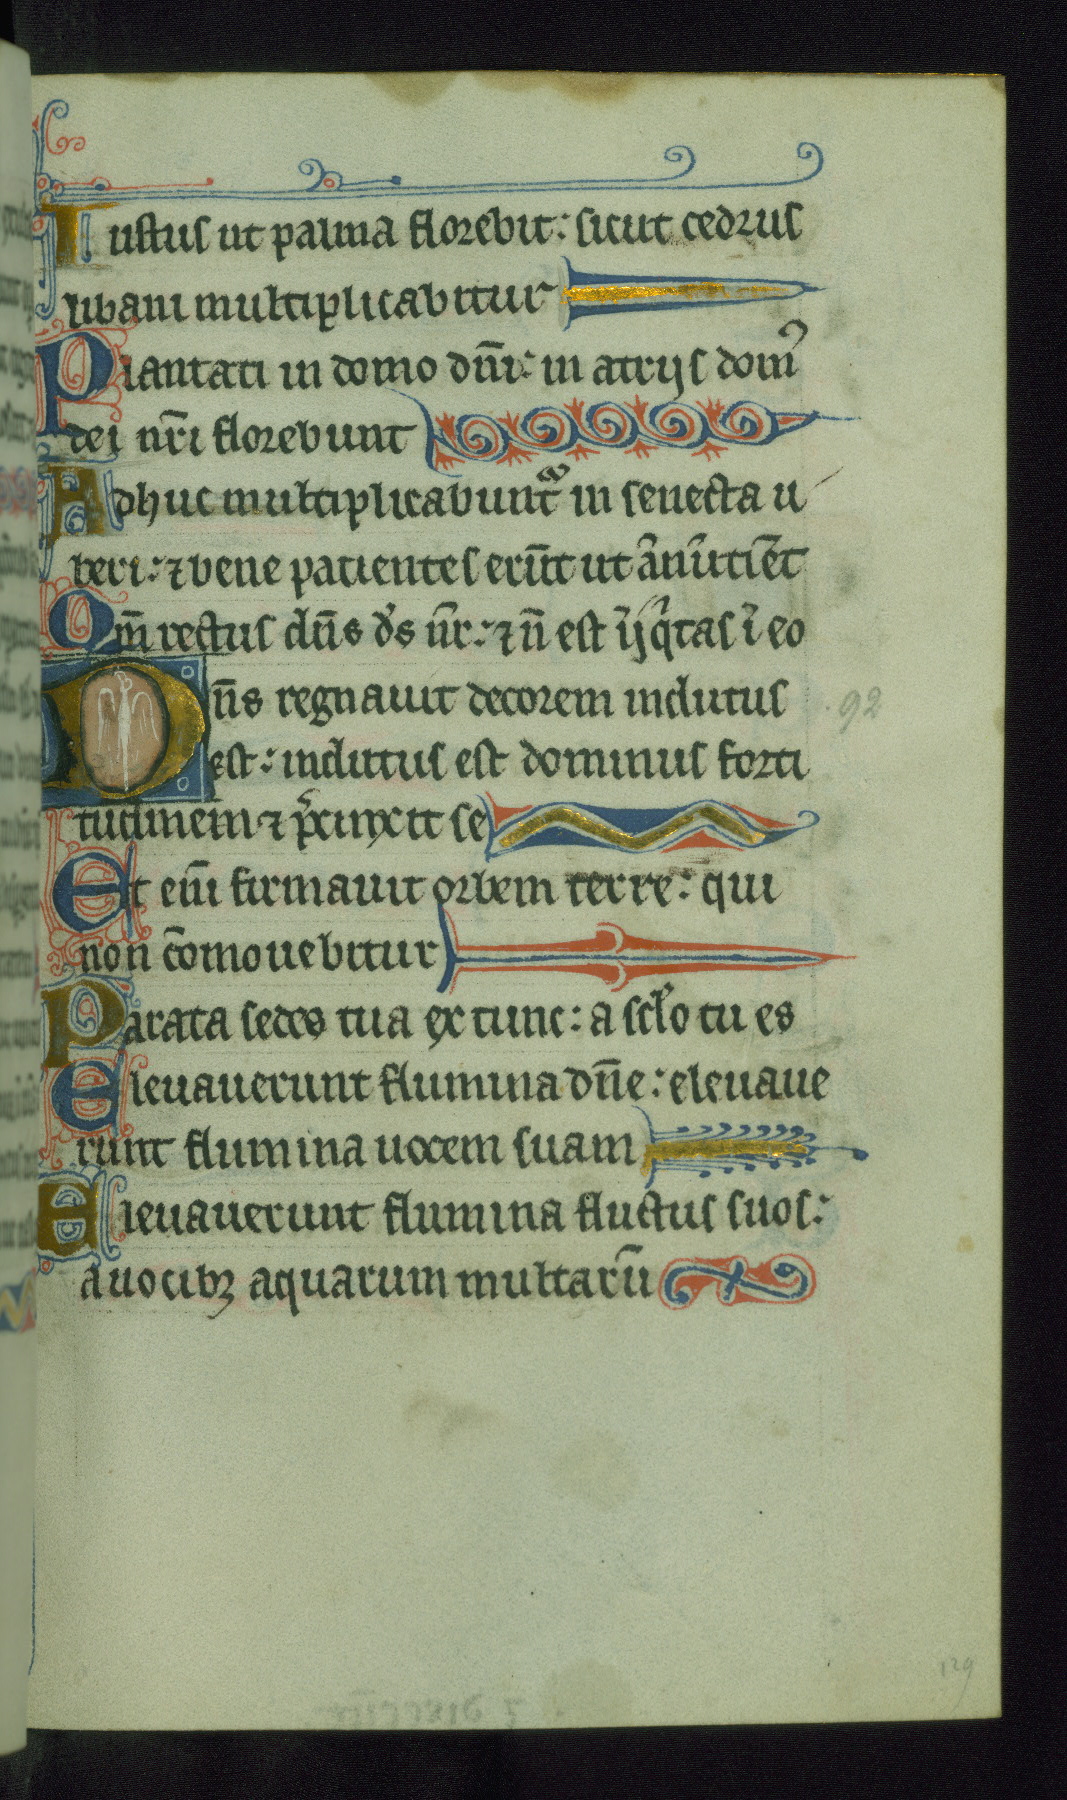 Iustus ut palma florebit: sicut cedrus
libani multiplicabitur
Plantati in domo dn̄i: in atrijs dom᷒
dei nr̄i florebunt
Adhuc multiplicabunt᷑ in senecta u
beri: ⁊ bene patientes erūt ut ānūtiēt
Qm̄ rectus dn̄s d̄s nr̄: ⁊ n̄ est īiq̄tas ī eo
Dn̄s regnauit decorem indutus 92
est: indutus est dominus forti
tudinem ⁊ p̄cinxit se
Et eīm firmauit orbem terre: qui
non c̄omouebitur
Parata sedes tua ex tunc: a scl̄o tu es
Eleuauerunt flumina dn̄e: eleuaue
runt flumina uocem suam
Eleuauerunt flumina fluctus suos:
a uocibꝫ aquarum multarū
129